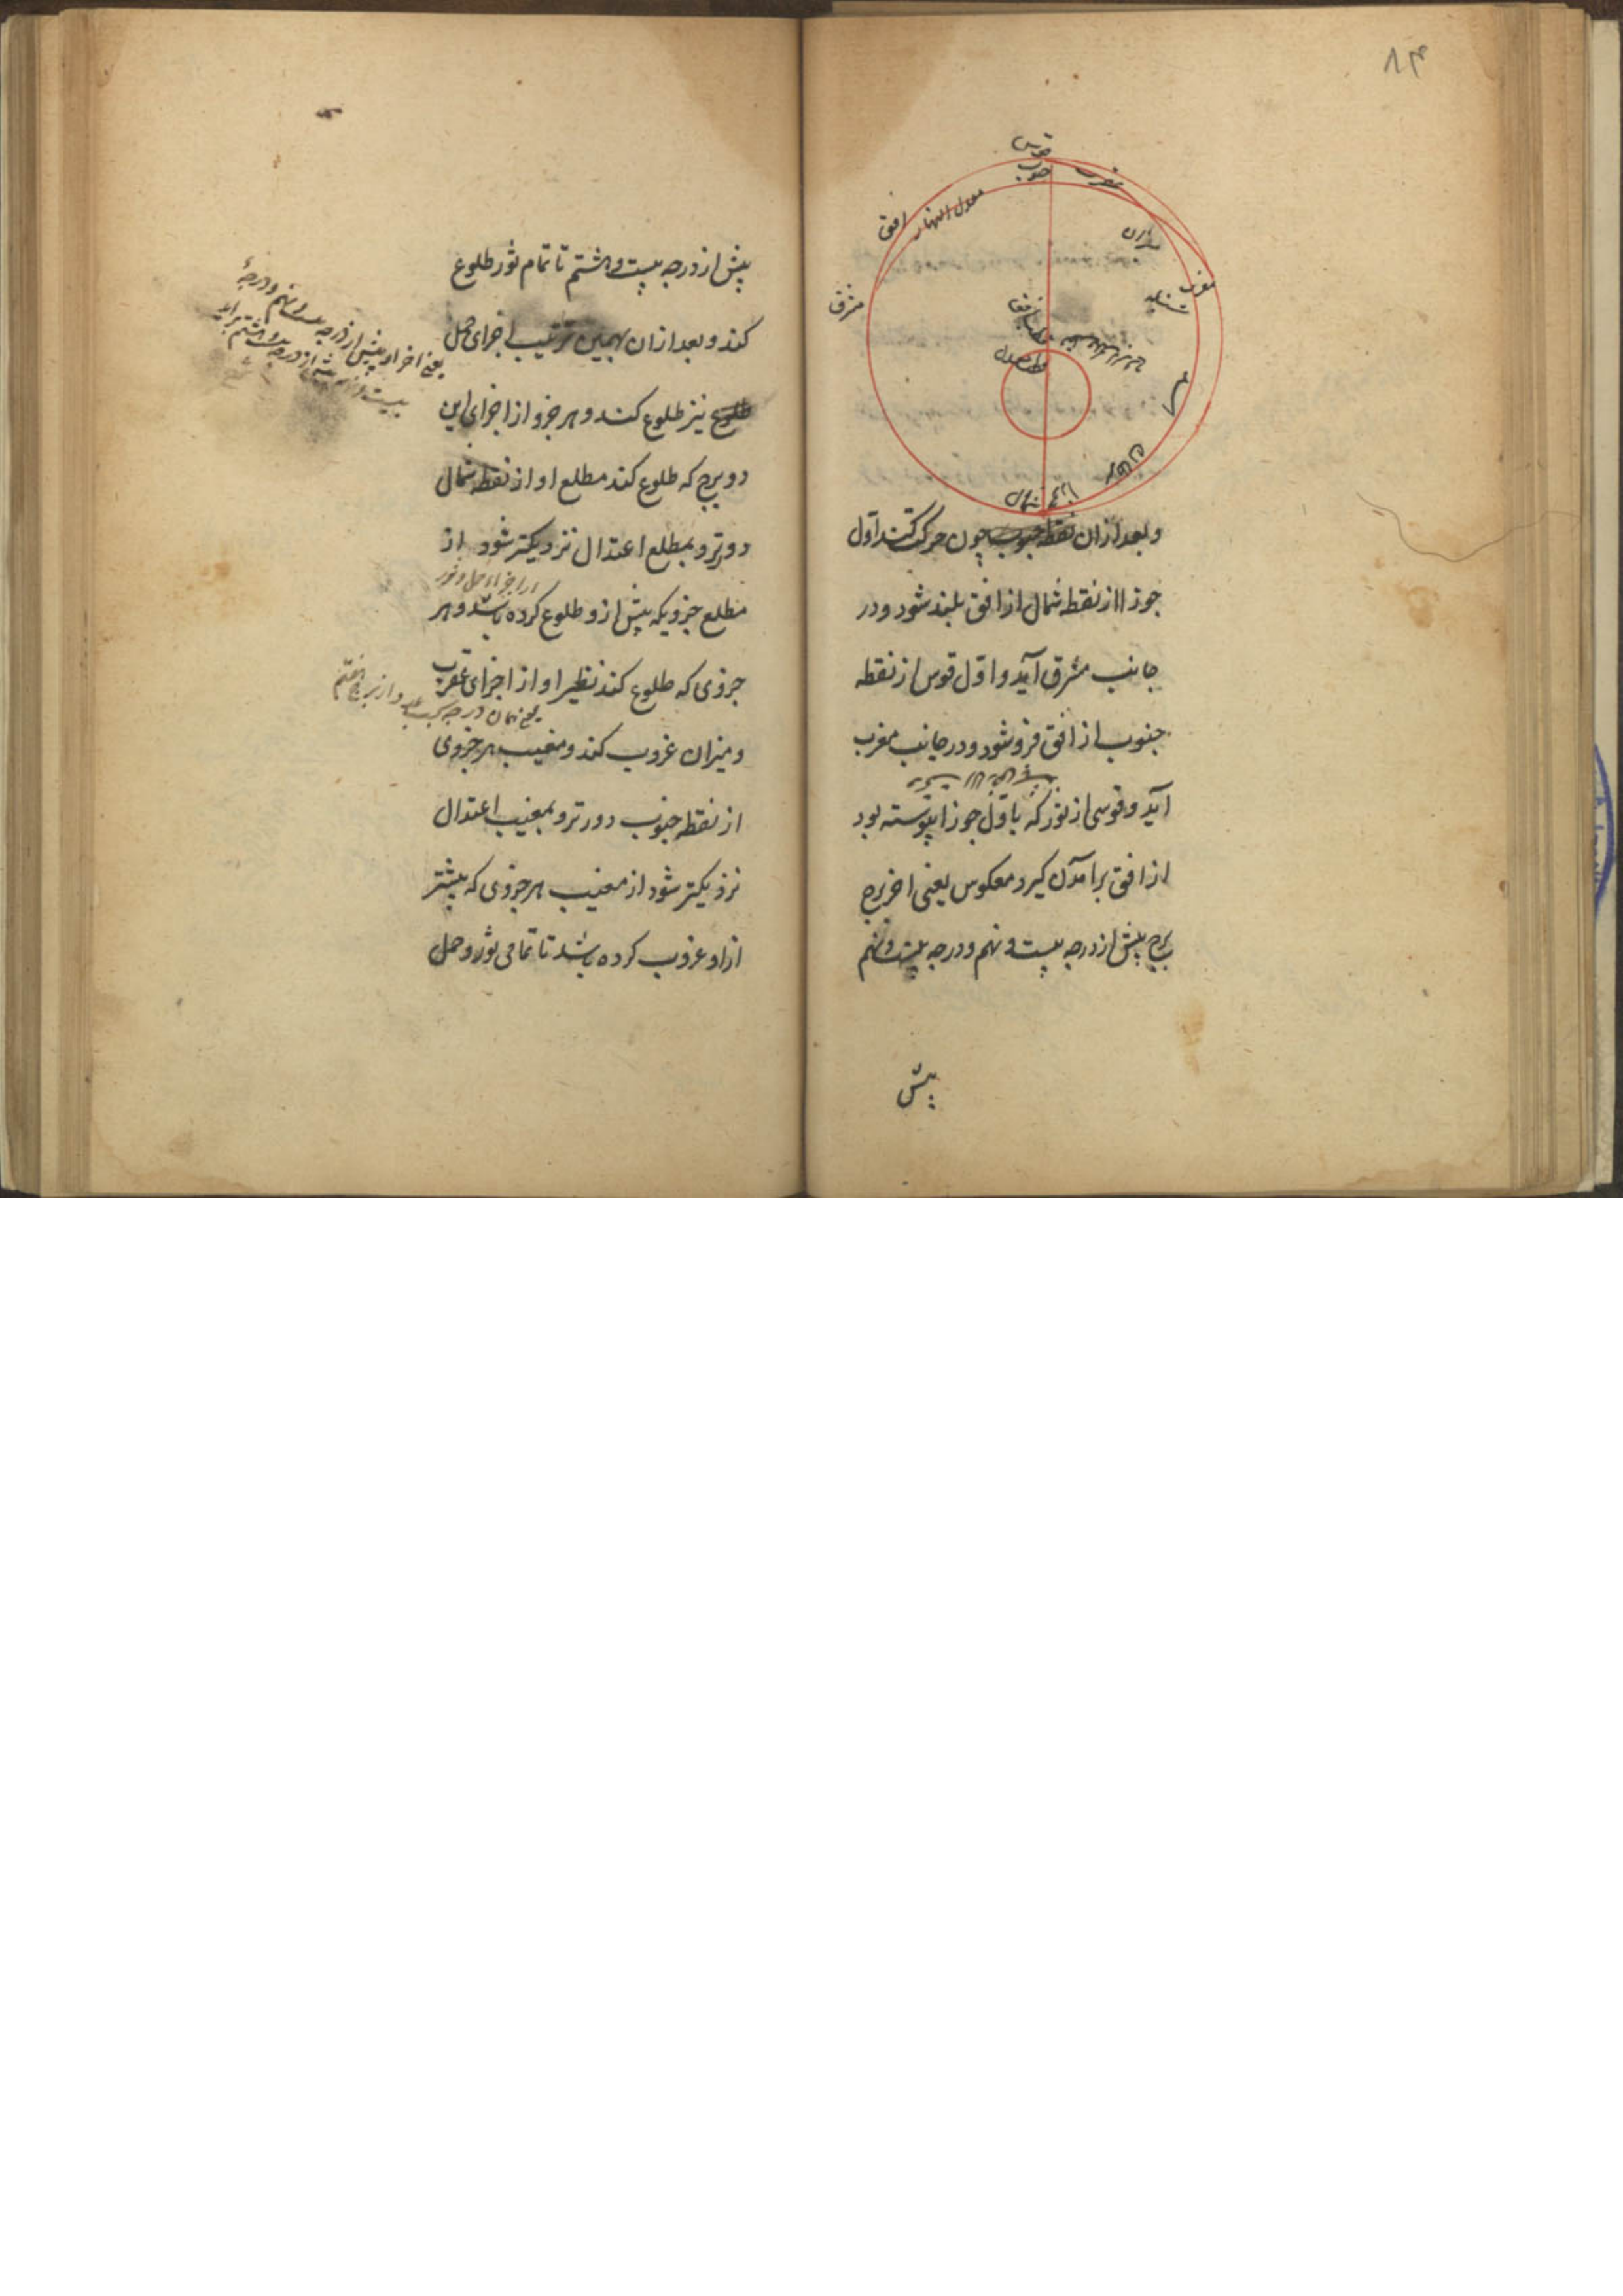 ۸۴
قوس
جنوب
عقرب
معدل النهار
افق
میزان
مغرب
مشرق
شمال
وبعد ازان نقطه جنوب چون حرکت کنند اول
جوزا از نقطه شمال از افق بلند شود و در
جانب مشرق آید و اول قوس از نقطه
جنوب از افق فرو شود و در جانب مغرب
آید و قوسی از ثور که باول جوزا پیوسته بود
از افق برآمدن گیرد معکوس یعنی اخر برج
برج پیش از درجه بیست و نهم و درجه بیست و نهم
پیش
پیش از درجه بیست و هشتم تا تمام ثور طلوع
کند و بعد ازان بهمین ترتیب اجزای حمل
طلوع نیز طلوع کند و هر جزو از اجزای این
دو برج که طلوع کند مطلع او از نقطه شمال
دورتر و بمطلع اعتدال نزدیکتر شود از
از اجزاء حمل و ثور
مطلع جزویکه پیش ازو طلوع کرده باشد و هر
جزوی که طلوع کند نظیر او از اجزای عقرب
و میزان غروب کند و مغیب هر جزوی
از نقطه جنوب دورتر و بمغیب اعتدال
نزدیکتر شود از مغیب هر جزوی که پیشتر
ازاو غروب کرده باشد تا تمامی ثور و حمل
یعنی اخر او پیش از درجه بیست و نهم و درجهٔ
بیست و نهم پیش از درجه بیست و هشتم براید